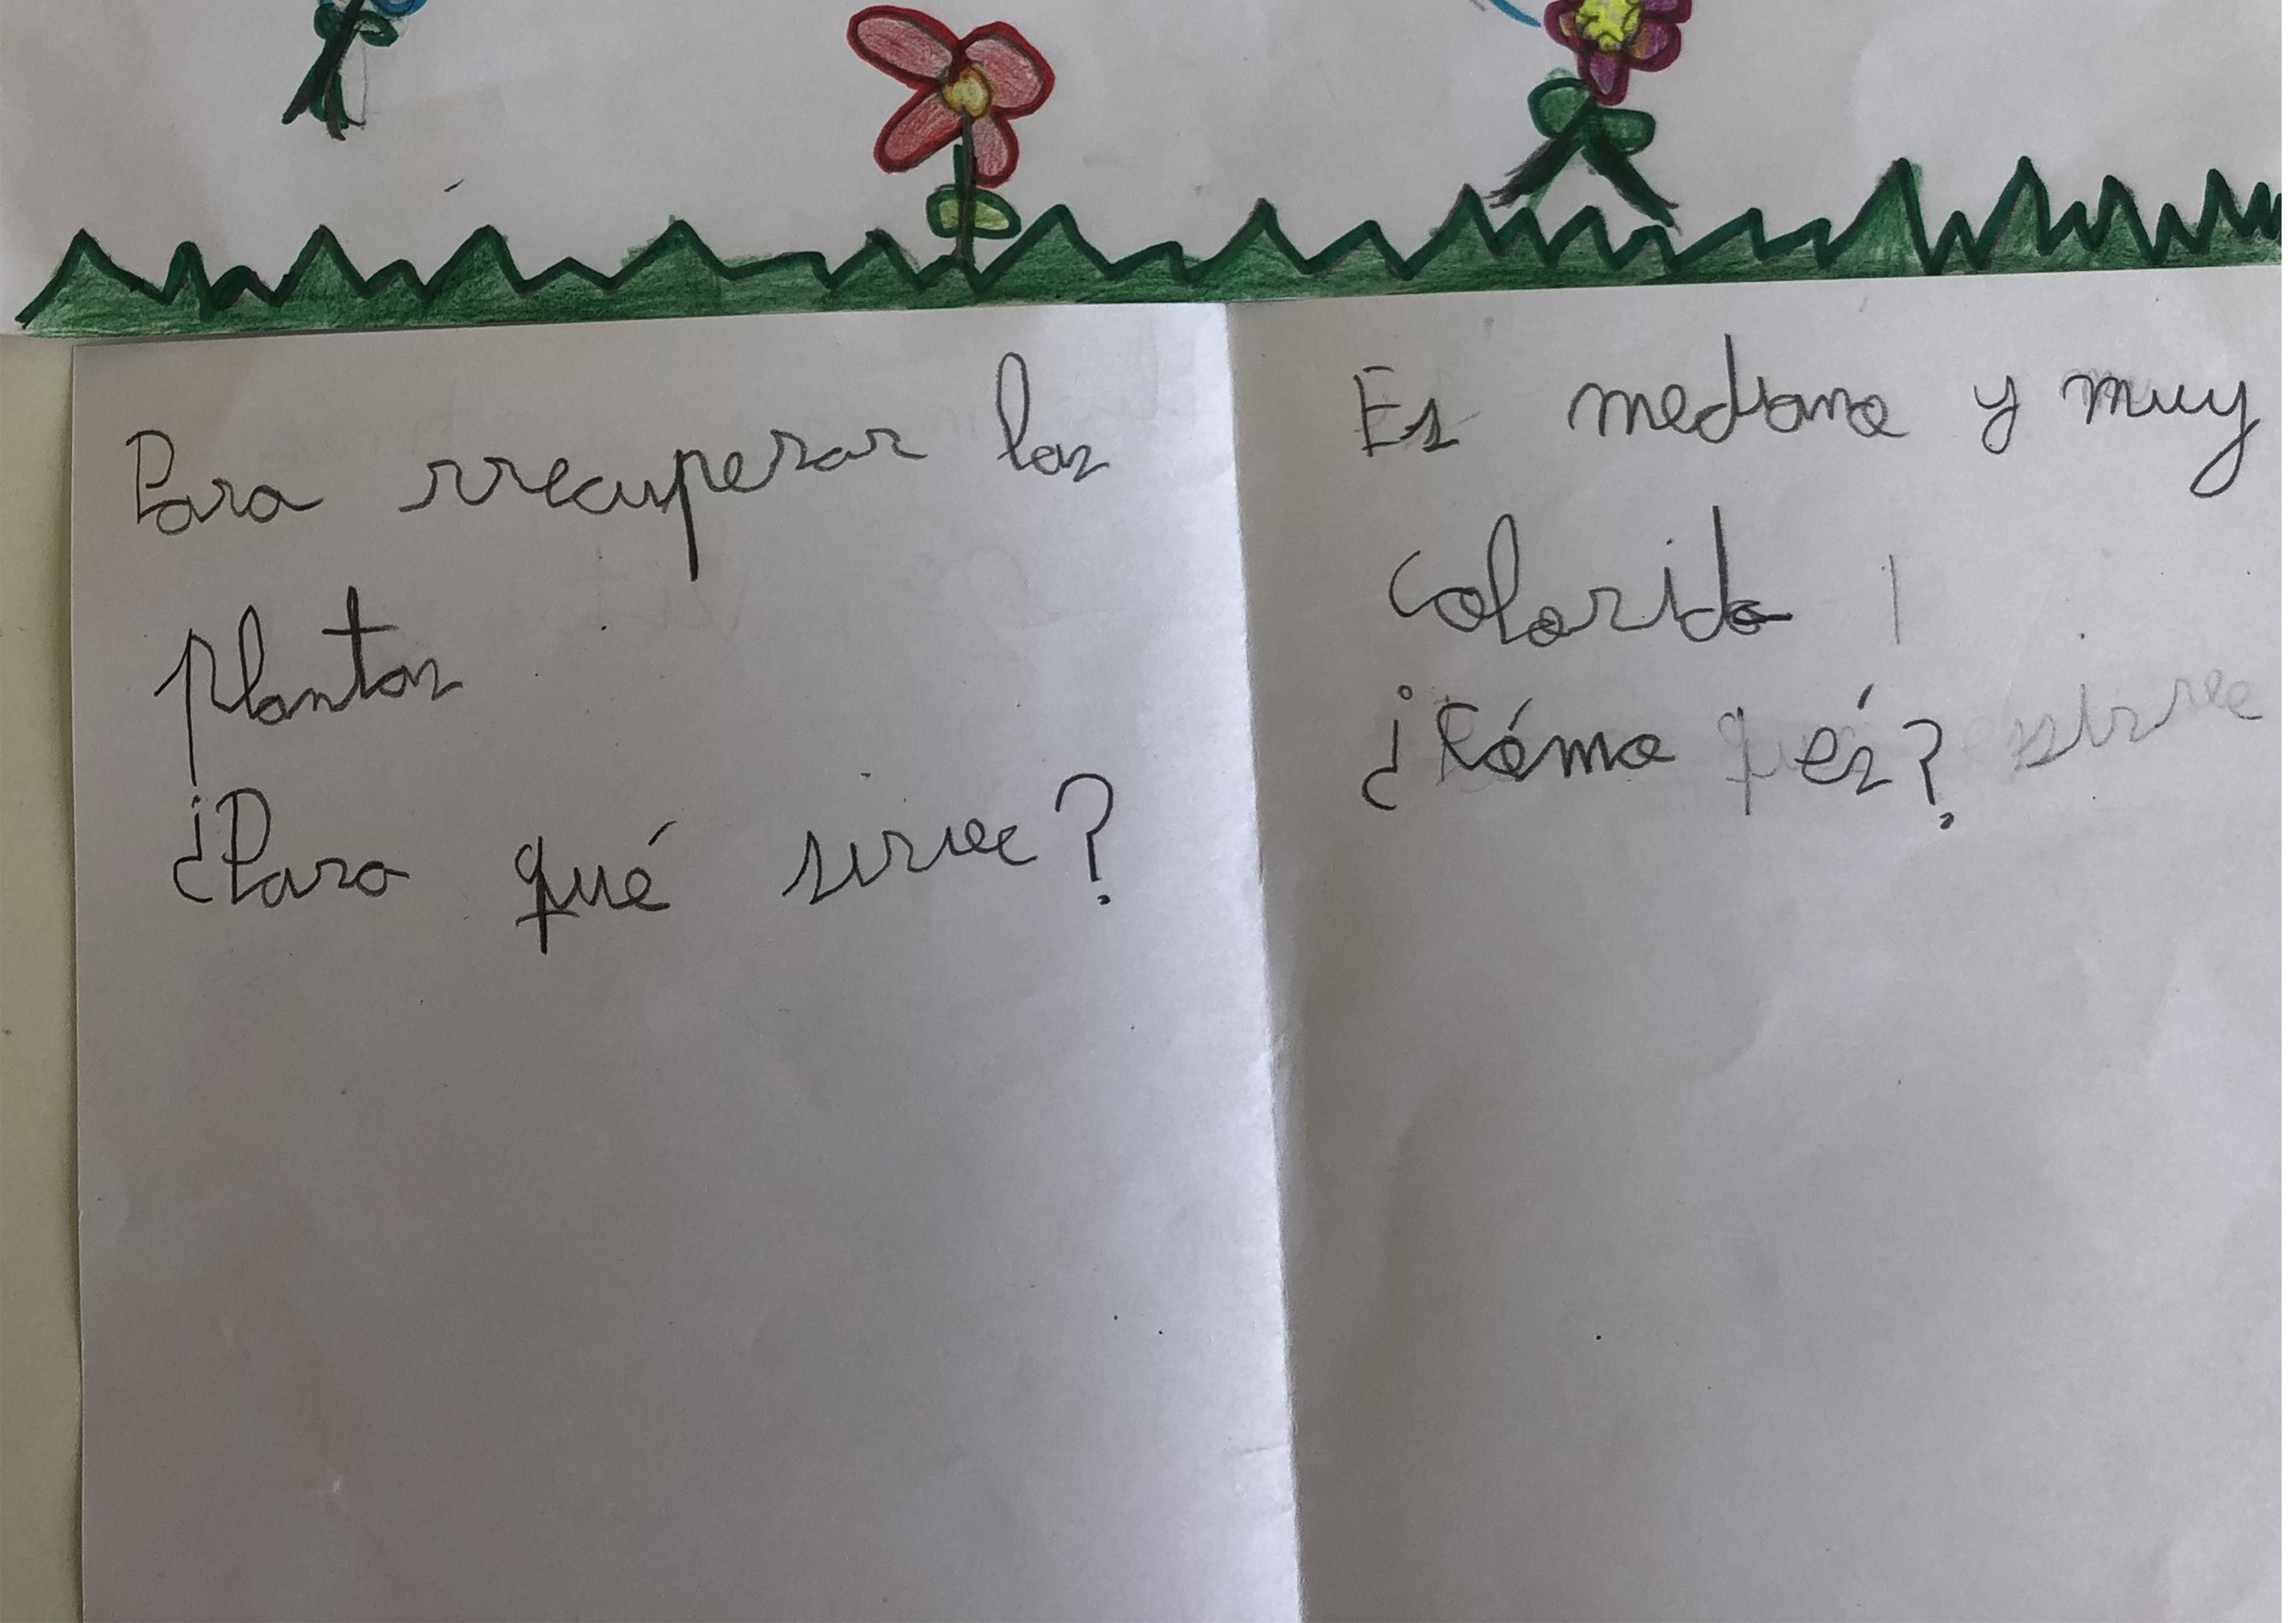 Para rrecuperar las
plantas
¿Para qué sirve?
Es mediano y muy
colorido
¿Cómo és?